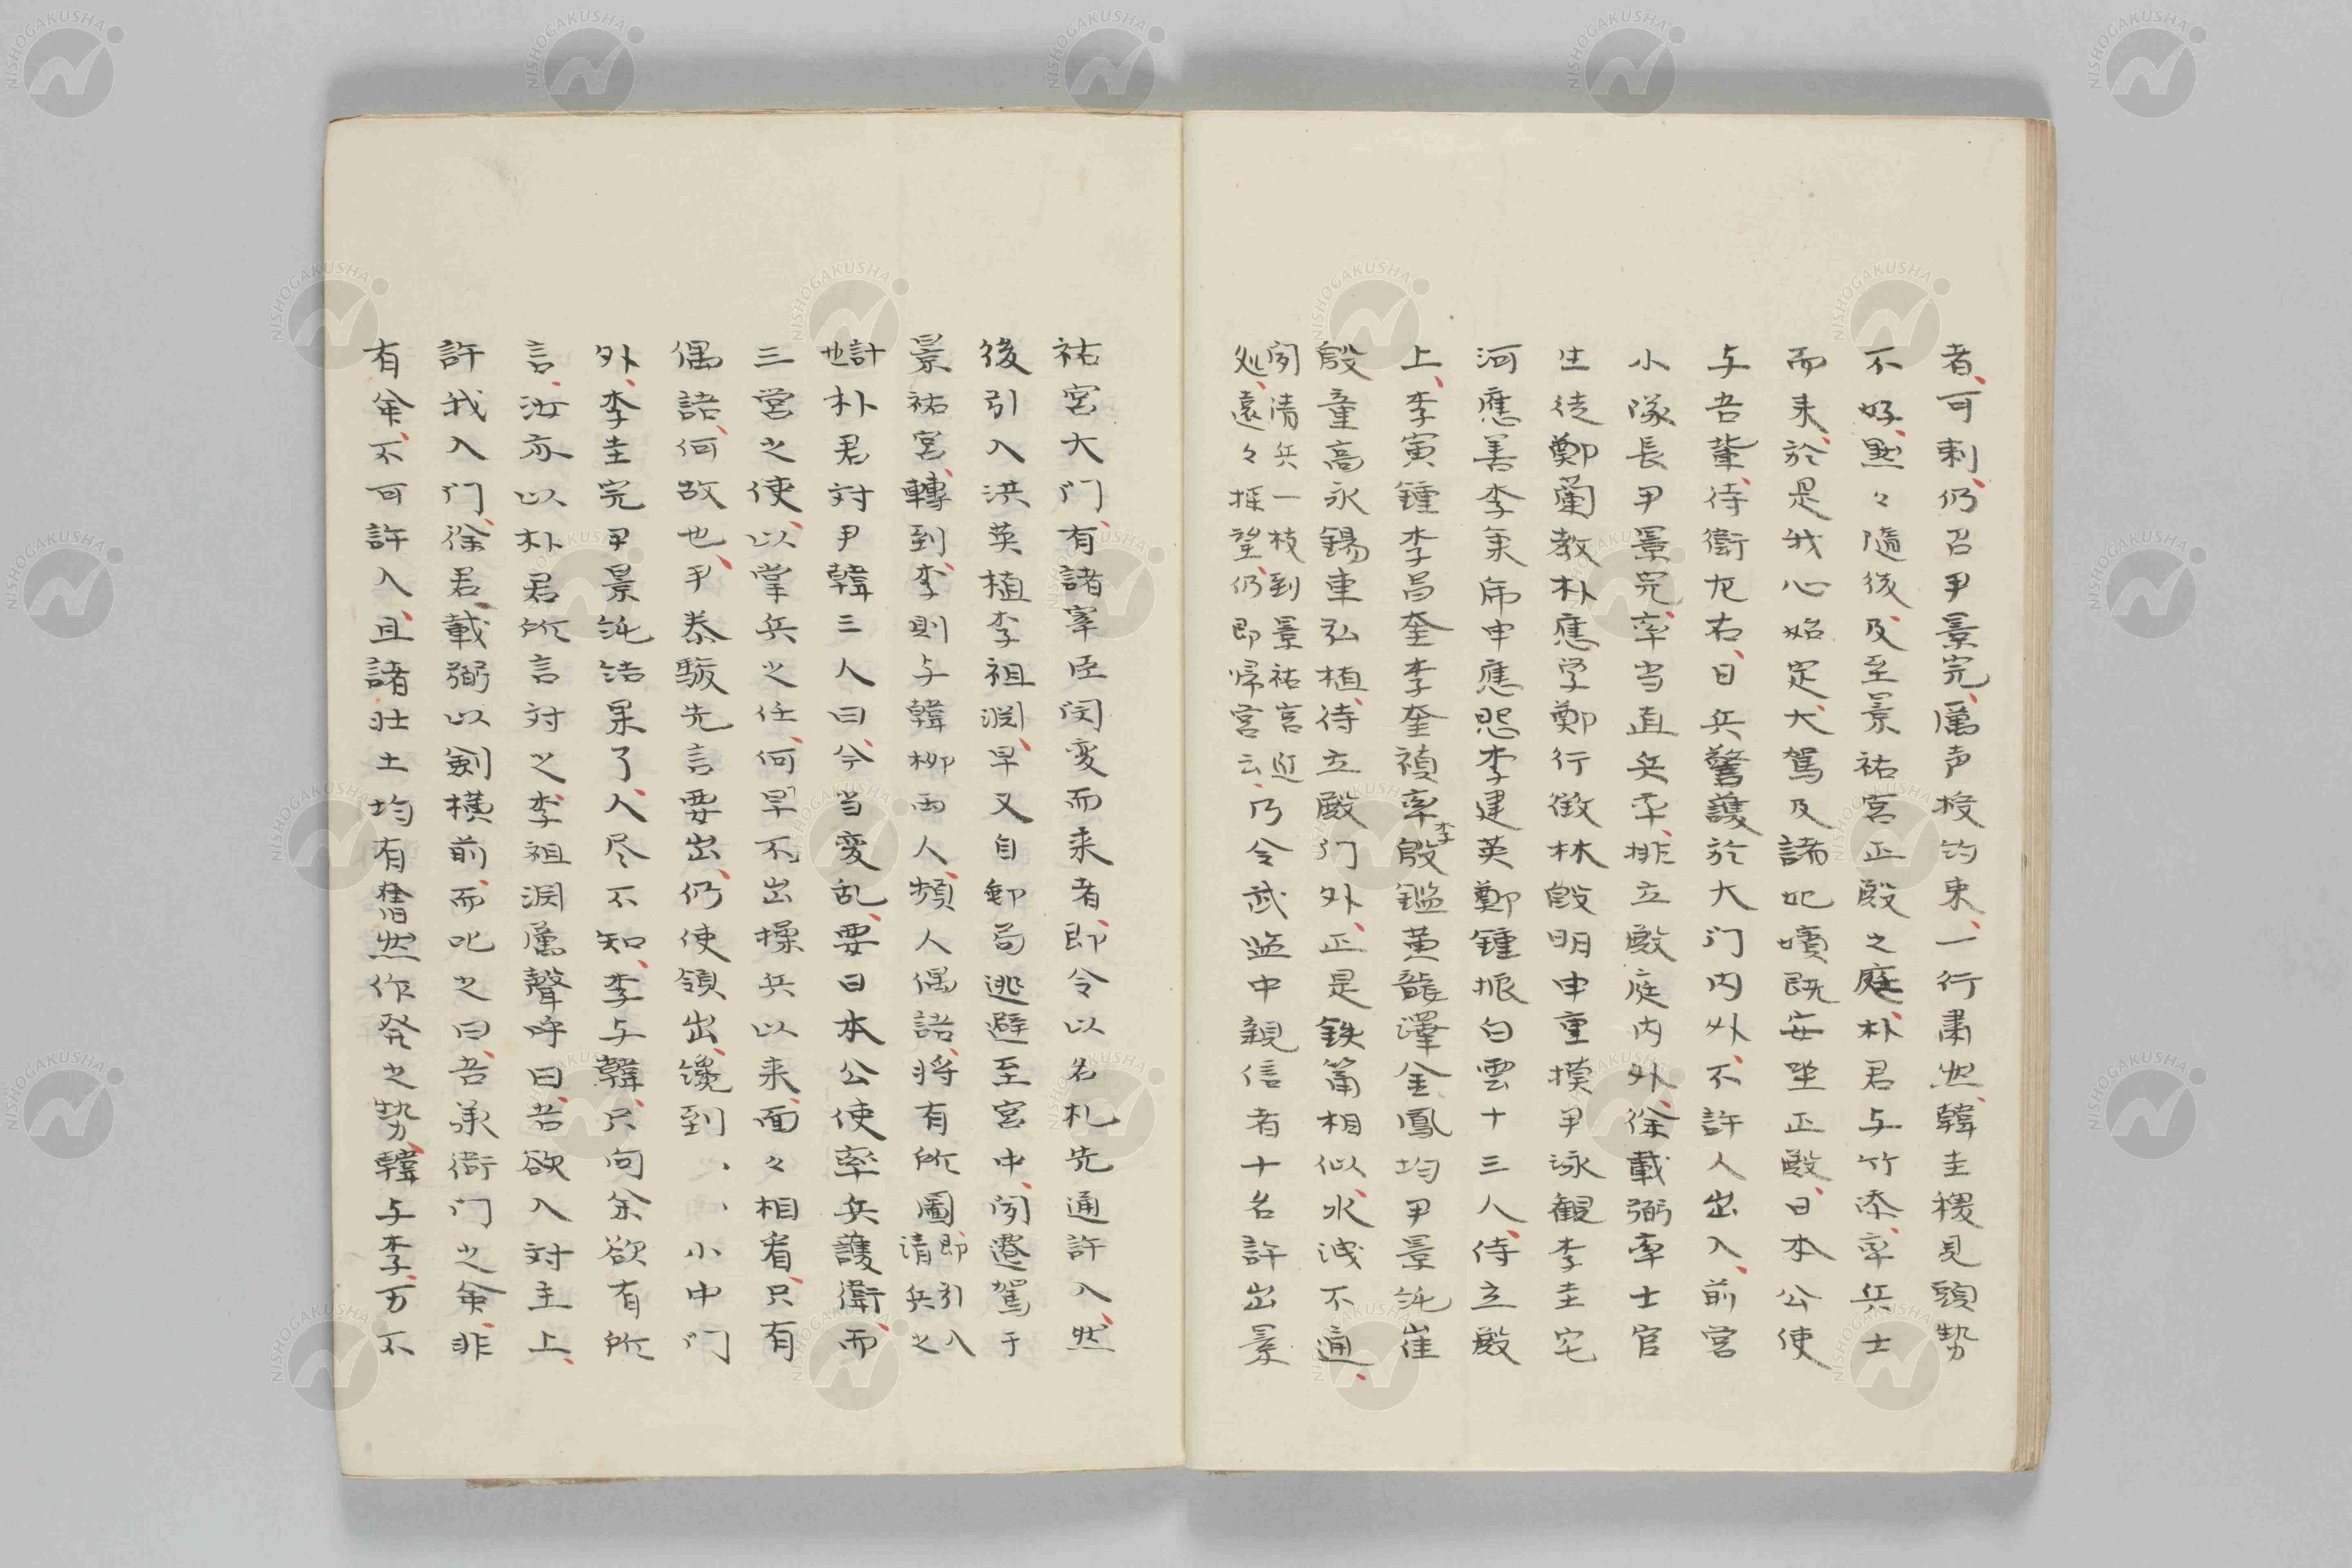 者、可刺、仍召尹景完、厲声授約束、一行肅然、韓圭稷見頭勢
不好、黙々隨後、及至景祐宮正殿之庭、朴君与竹添、率兵士
而来、於是我心始定、大駕及諸妃嬪既安坐正殿、日本公使
与吾輩、侍衛左右、日兵警護於大门内外、不許人出入、前営
小隊長尹景完、率当直兵卒、排立殿庭内外、徐載弼率士官
生徒鄭蘭教朴應学鄭行徴林殷明申重模尹泳観李圭宅
河應善李秉虎申應熙李建英鄭鍾振白雲十三人、侍立殿
上、李寅鍾李昌奎李奎禎率李殷鑑黄龍澤金鳳均尹景純崔
殷童高永錫車弘植、侍立殿门外、正是鉄筩相似、水洩不通、
聞清兵一枝到景祐宮近
処、遠々探望、仍即帰営云、乃令武監中親信者十名許出景
祐宮大门、有諸宰臣聞変而来者、即令以名札先通許入、然
後引入洪英植李祖淵、早又自郵局逃避至宮中、聞遷駕于
景祐宮、轉到、李則与韓柳両人、頻人偶語、将有所圖、即引入
清兵之
計
也朴君対尹韓三人曰、今当変乱、要日本公使率兵護衛、而
三営之使、以掌兵之任、何早不出操兵以来、面々相看、只有
偶語、何故也、尹泰駿先言要出、仍使領出、纔到、、小中門
外、李圭完尹景純結果了、人尽不知、李与韓、只向余欲有所
言、汝亦以朴君所言対之、李祖淵厲聲呼曰、吾欲入対主上、
許我入门、徐君載弼以剣横前、而叱之曰、吾承衛门之命、非
有命、不可許入、且諸壮士均有奮然作発之勢、韓与李、万不